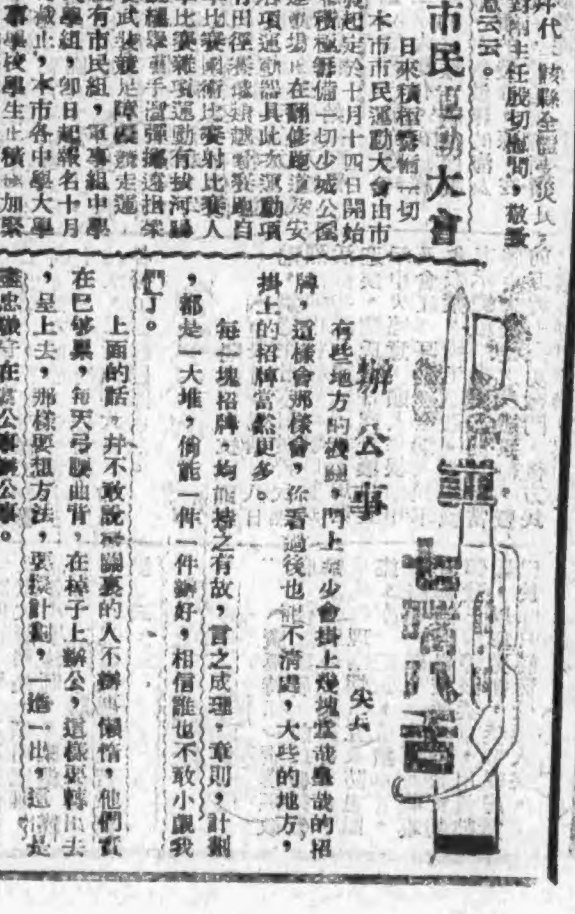 代三該縣全體災民
對南主任殷切慰問,敬致
意云云。
市民運動大會
日來積極籌備一切
本市市民運動大會由市
起定於十月十四日開始
積極籌備一切少城公園
運動場正在翻修跑道及安
項運動器具此次運動項
有田徑賽越野賽跑自
車比賽國術比賽射比賽人
車比賽雜項運動有拔河
舉重手溜彈擲遠担架
武裝競走障礙競走運
有市民組,軍事組中學
學組,即日起報名十月
截止,本市各中學大學
事學校學生正積極加緊
七嘴八舌
辦公事
尖兵
有些地方的機關,門上至少會掛上幾塊堂哉皇哉的招
牌,這樣會那樣會,你看過後也記不清楚,大些的地方,
掛上的招牌當然更多。
每一塊招牌,均能持之有故,言之成理,章則,計劃
,都是一大堆,倘能一件一件辦好,相信誰也不敢小覷我
們了。
上面的話,并不敢說機關裏的人不辦事懶惰,他們實
在已够累,每天弓腰曲背,在棹子上辦公,這樣要轉出去
,呈上去,那樣要想方法,要擬計劃,一進一出,還是
盡忠職守在辦公事。